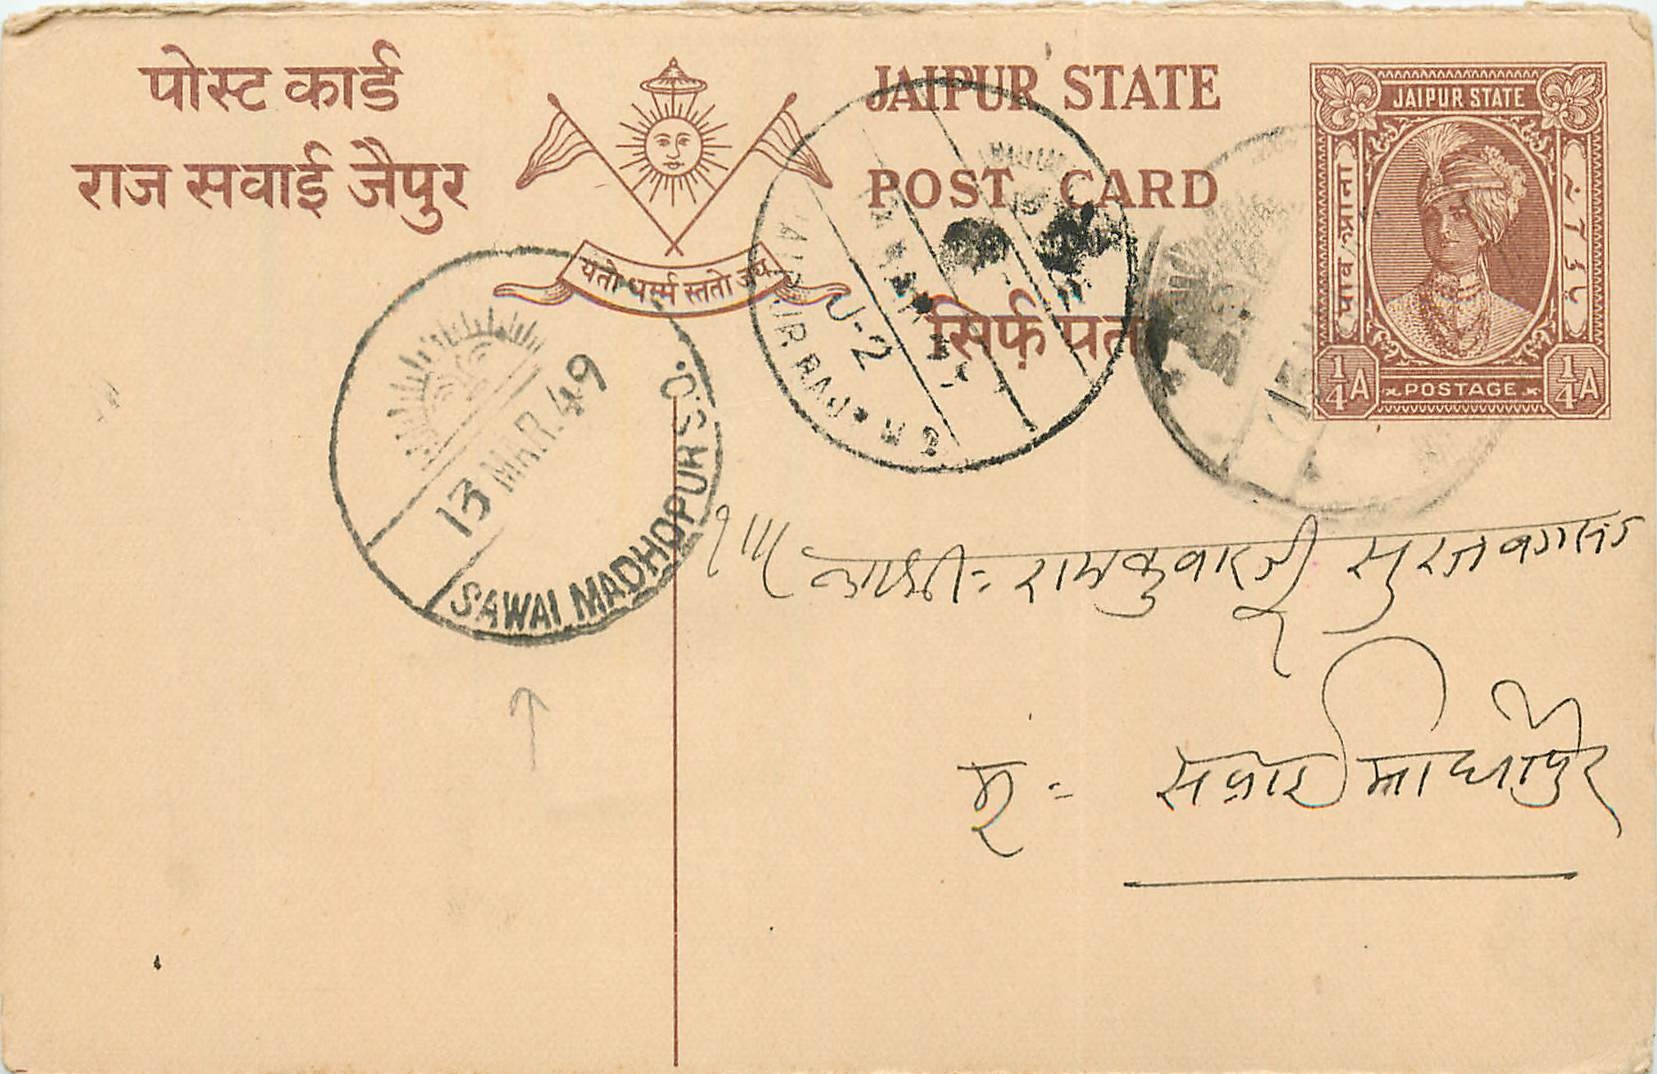 पोस्ट कार्ड
राज सवाई जैपुर
यतो धर्म्म स्ततो जय
JAIPUR STATE
POST CARD
सिर्फ़ पता
JAIPUR STATE
पाव आना
POSTAGE
1/4 A
1/4 A
13 MAR. 49
SAWAI MADHOPUR S.O.
U-2
रामकुवारजी सुरज
मु:= सवाई माधोपुर